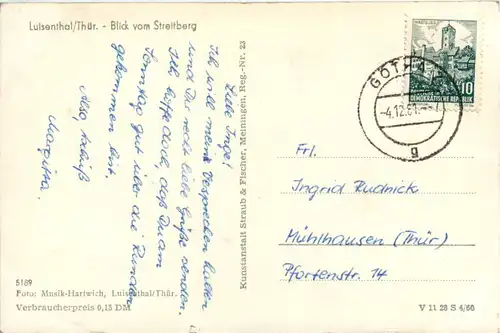 Luisenthal/Thür. - Blick vom Streitberg
Liebe Inge!
Ich will mein Versprechen halten
und Dir recht liebe Grüße senden.
Ich hoffe doch, daß Du am
Sonntag gut über die Runden
gekommen bist.
Also tschüß
Margitta.
5189
Foto: Musik-Hartwich, Luisenthal/Thür.
Verbraucherpreis 0,15 DM
Kunstanstalt Straub & Fischer, Meiningen, Reg.-Nr. 23
WARTBURG
10
DEUTSCHE
DEMOKRATISCHE REPUBLIK
GOTHA
-4.12.61.
g
Frl.
Ingrid Rudnick
Mühlhausen (Thür)
Pfortenstr. 14
V 11 28 S 4/60